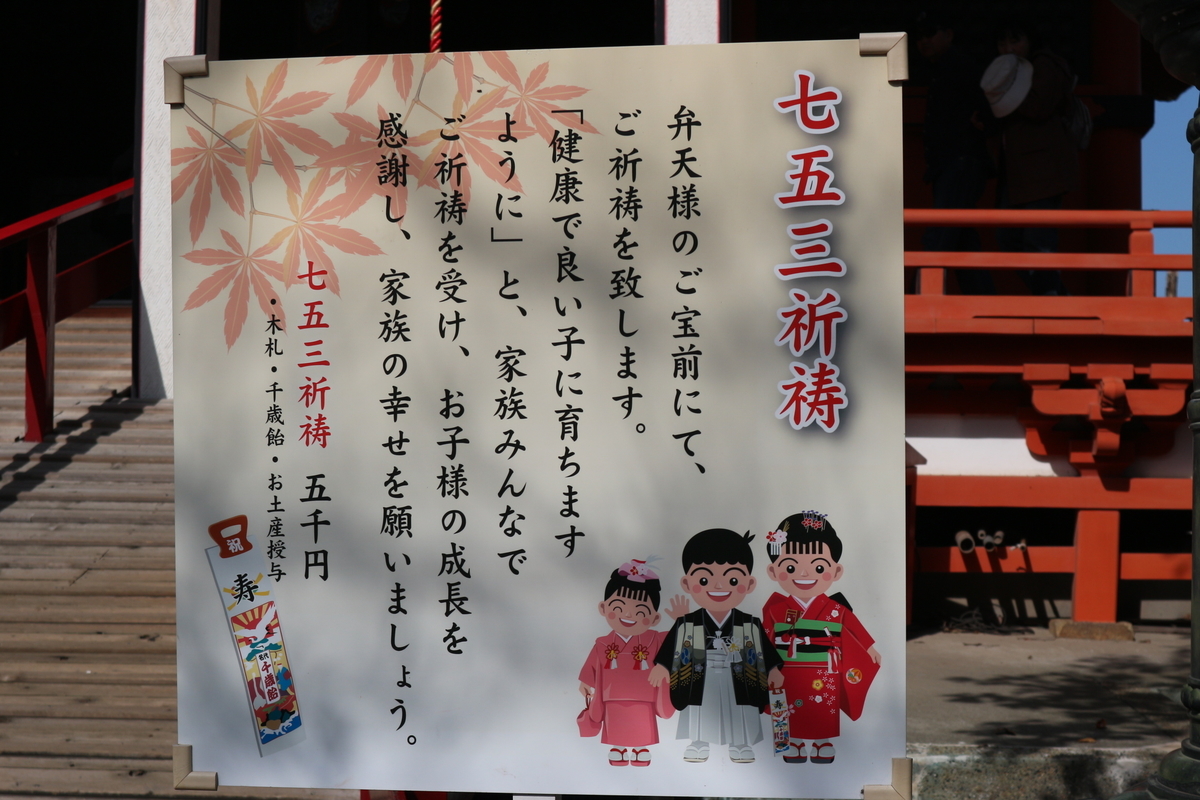 七五三祈祷
弁天様のご宝前にて、
ご祈祷を致します。
「健康で良い子に育ちます
ように」と、家族みんなで
ご祈祷を受け、お子様の成長を
感謝し、家族の幸せを願いましょう。
七五三祈祷 五千円
・木札・千歳飴・お土産授与
祝
寿
千歳飴
寿